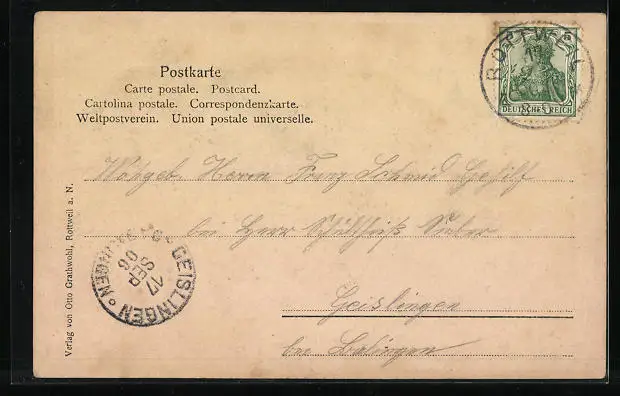 Postkarte
Carte postale. Postcard.
Cartolina postale. Correspondenzkarte.
Weltpostverein. Union postale universelle.
ROTTWEIL
DEUTSCHES REICH
Herrn Franz Schmid
bei Herrn Schultheiß
Geislingen
bei Balingen
GEISLINGEN
17 SEP 06
Verlag von Otto Grathwohl, Rottweil a. N.